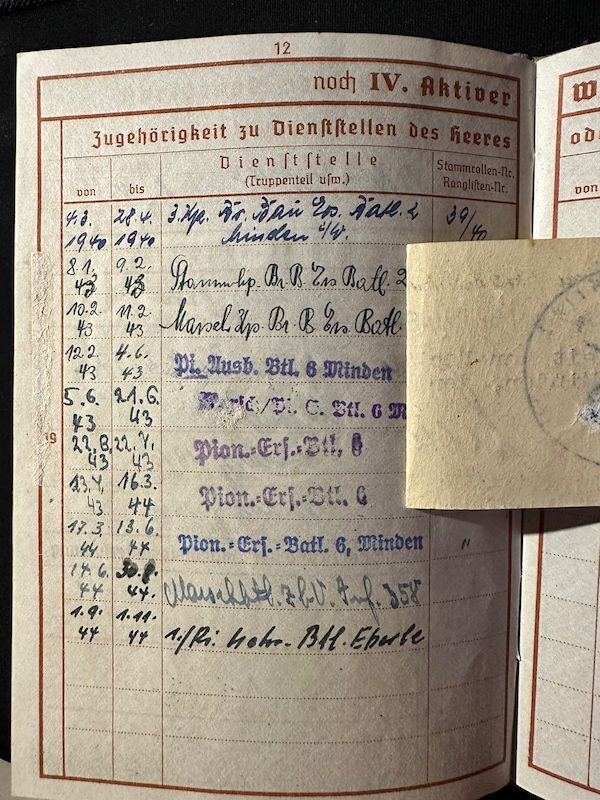 12
noch IV. Aktiver
Zugehörigkeit zu Dienststellen des Heeres
von bis Dienststelle (Truppenteil usw.) Stammrollen-Nr. Ranglisten-Nr.
4.3. 1940 28.4. 1940 3. Kp. Br. Bau Ers. Batl. 2 Minden i/W. 39/40
8.1. 43 9.2. 43 Stammkp. Br. B Ers Batl. 2
10.2. 43 11.2. 43 Marsch Kp Br. B Ers Batl.
12.2. 43 4.6. 43 Pi. Ausb. Btl. 6 Minden
5.6. 43 21.6. 43 Marsch/Pi. E. Btl. 6 M
19
43 43 Pion.=Ers.=Btl. 6
43 16.3. 44 Pion.=Ers.=Btl. 6
17.3. 44 13.6. 44 Pion.=Ers.=Batl. 6, Minden "
14.6. 44 44. Marschbtl. z.b.V. Inf. 358
1.9. 44 1.11. 44 Btl. Eberle
W
od
von